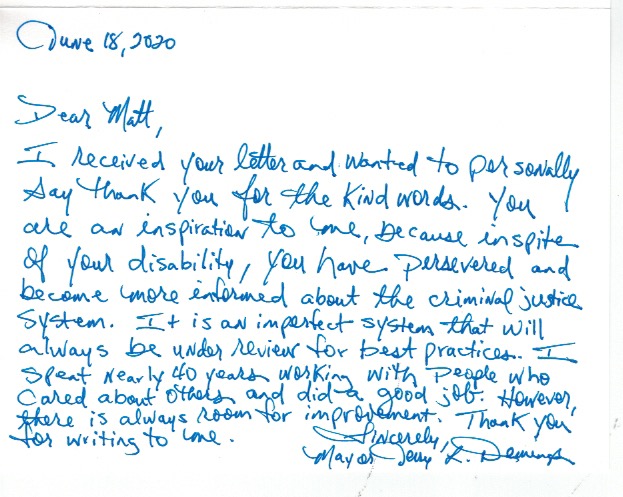 June 18, 2020
Dear Matt,
I received your letter and wanted to personally
say thank you for the kind words. You
are an inspiration to me, because inspite
of your disability, you have persevered and
become more informed about the criminal justice
system. It is an imperfect system that will
always be under review for best practices. I
spent nearly 40 years working with people who
cared about others and did a good job. However,
there is always room for improvement. Thank you
for writing to me.
Sincerely,
Mayor Jerry L. Demings